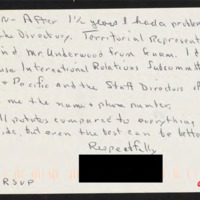 - After 1½ years I had a problem
the Directory. Territorial Represent
ind Mr. Underwood from Guam. I t
use International Relations Subcommitt
+ Pacific and the Staff Directors of
me the name + phone number.
ll potatos compared to everything
ide, but even the best can be bette
Respectfully
RSVP